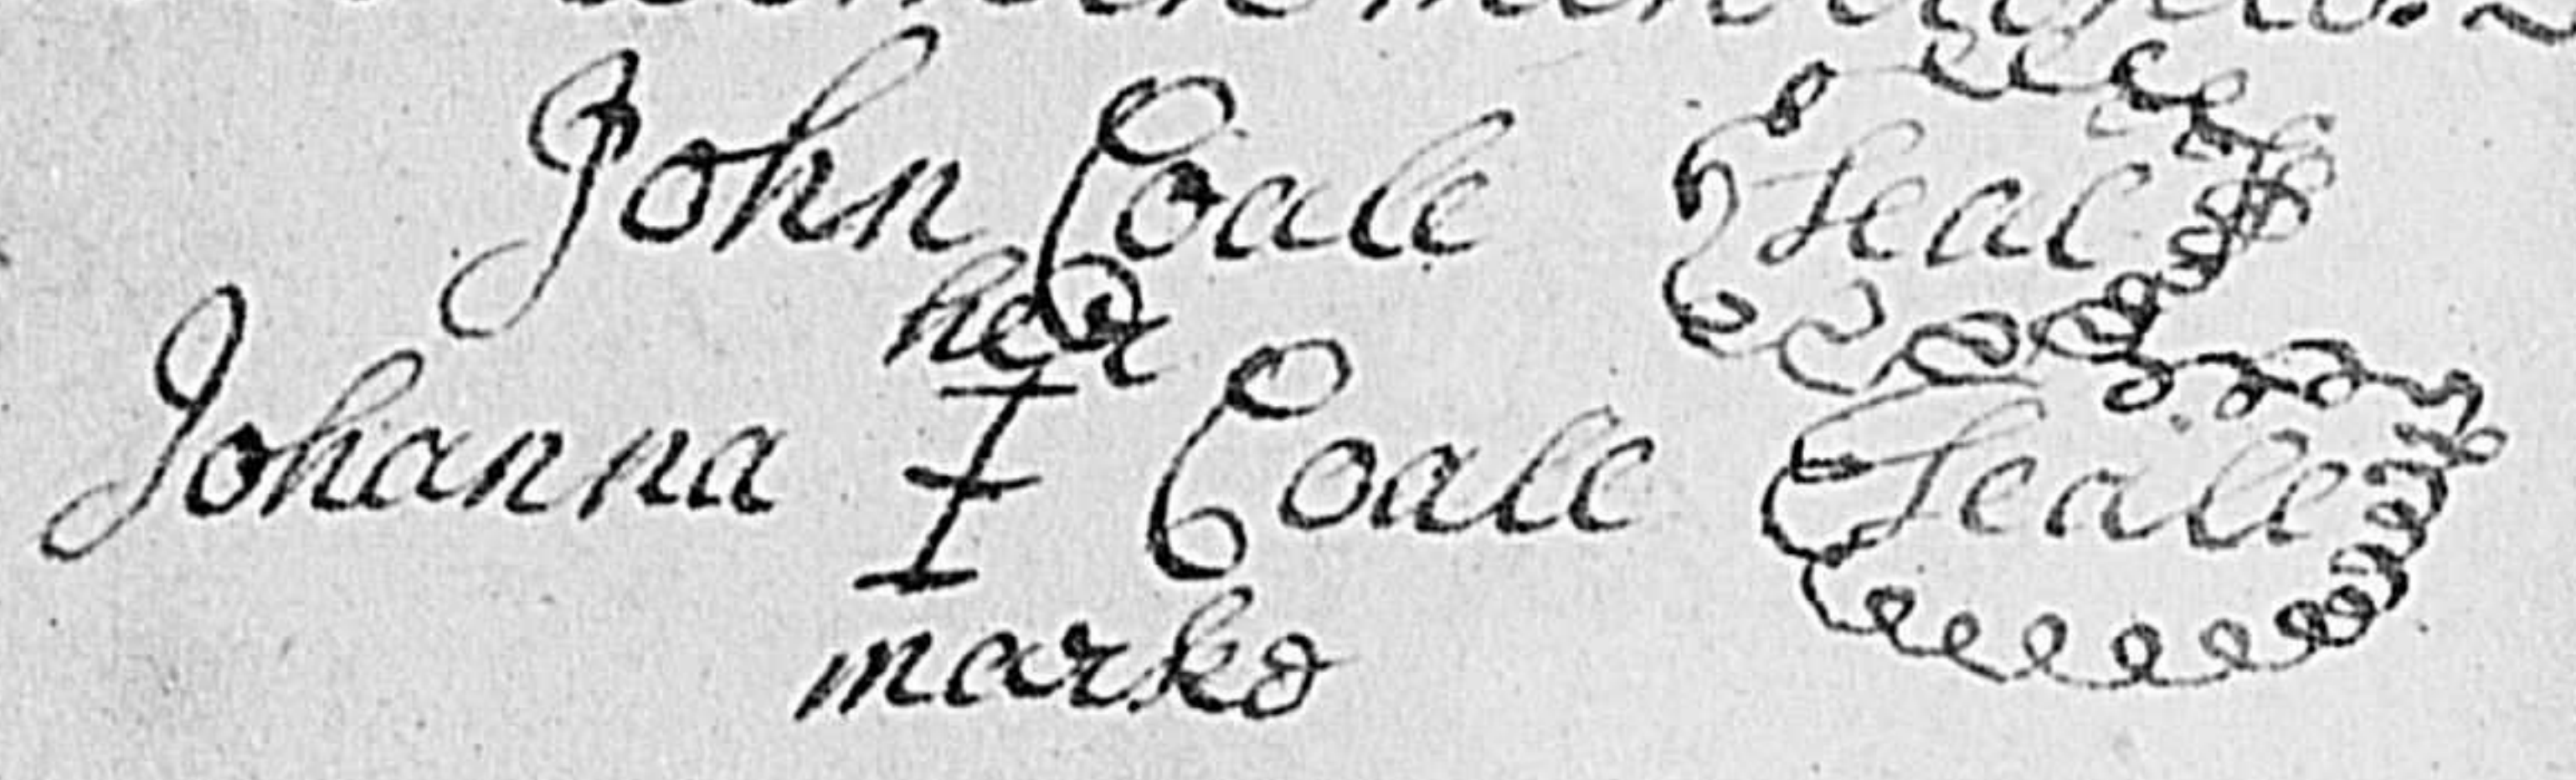 John Coale Seal
her
Johanna I Coale Seale
marke